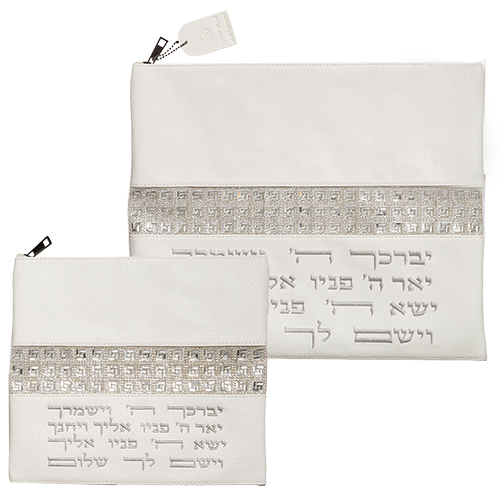 יברכך ה' וישמרך
יאר ה' פניו
ישא ה' פניו
וישם לך
יברכך ה' וישמרך
יאר ה' פניו אליך ויחנך
ישא ה' פניו אליך
וישם לך שלום